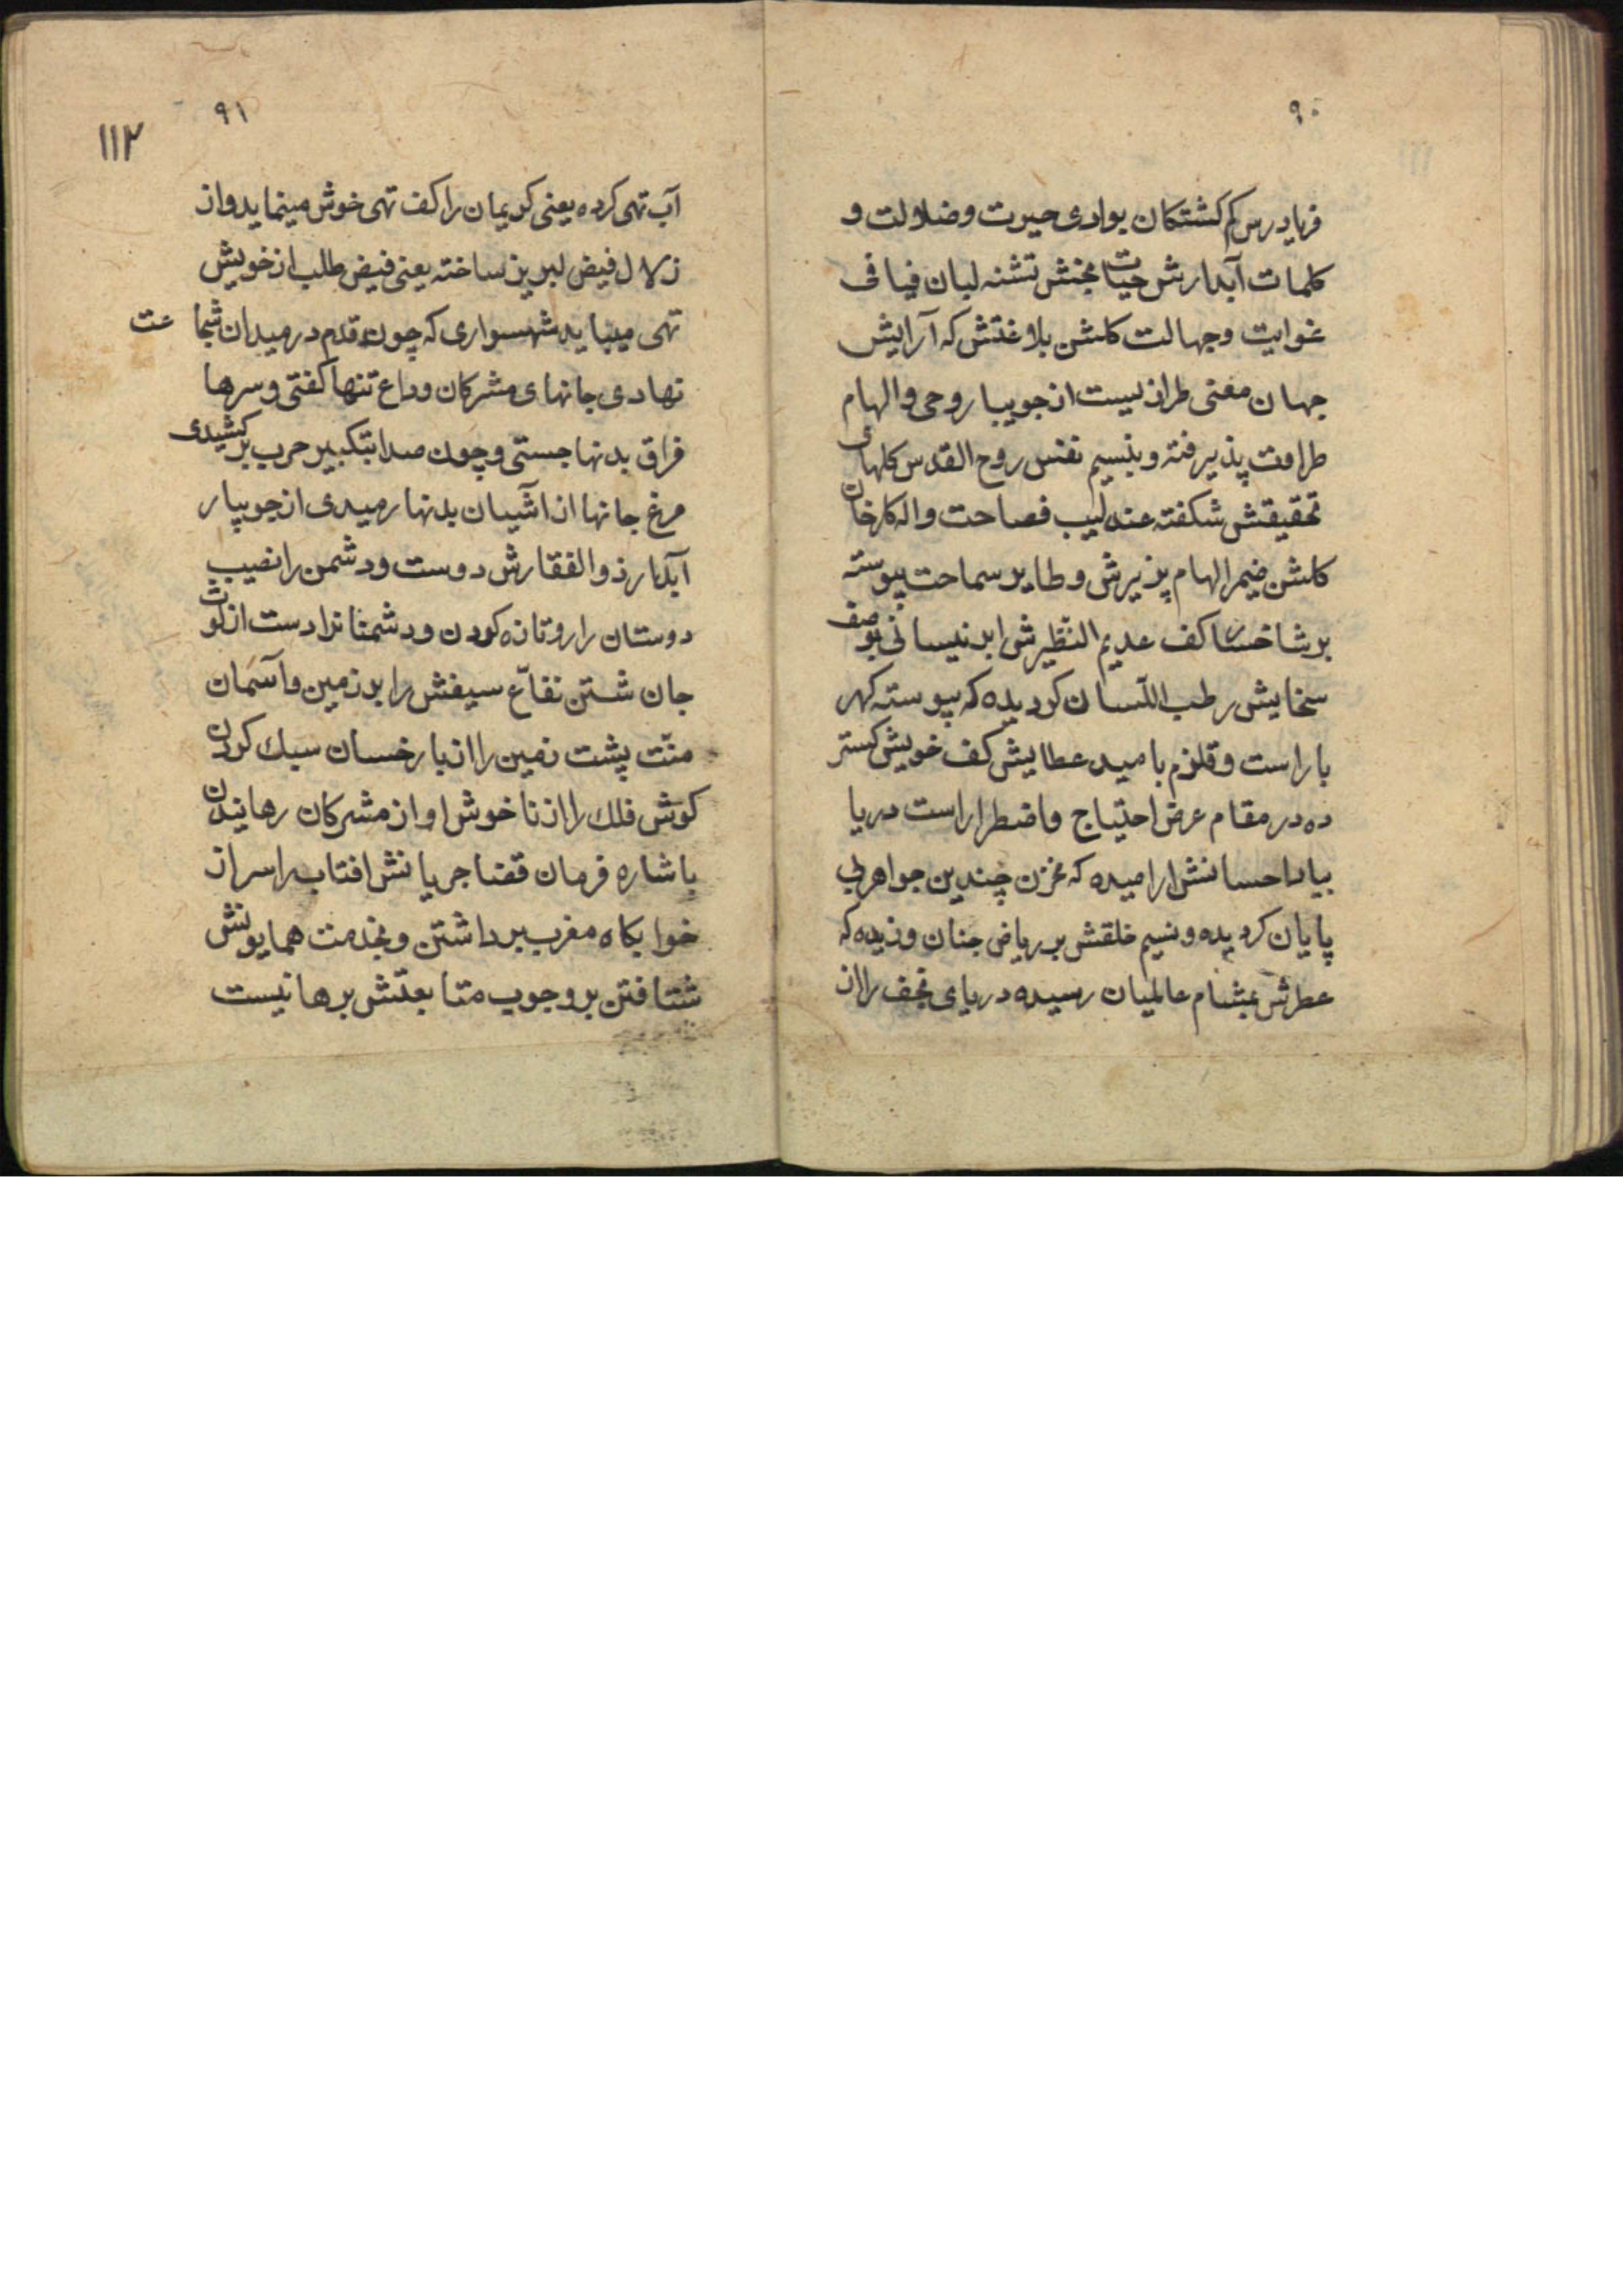 ۹۰
فریادرس کم کشتکان بوادی حیرت و ضلالت و
کلمات آبدارش حیات بخش تشنه لبان فیافی
غوایت و جهالت کلشن بلاغتش که آرایش
جهان معنی طرازیست از جویبار وحی و الهام
طراوت پذیرفته و بنسیم نفس روح القدس کلهای
تحقیقش شکفته عندلیب فصاحت واله کارخان
کلشن ضمیر الهام پذیرش و طایر سماحت پیوسته
بر شاخسار کف عدیم النظیرش ابر نیسانی بوصف
سخایش رطب اللسان کردیده که پیوسته کهر
بار است و قلزم بامید عطایش کف خویش کستر
ده در مقام عرض احتیاج و اضطرار است دریا
بیاد احسانش ارامیده که مخزن چندین جواهر بی
پایان کردیده و نسیم خلقش بر ریاض جنان وزیده که
عطرش بمشام عالمیان رسیده دریای نجف را از
۹۱
۱۱۲
آب تهی کرده یعنی کریمان را کف تهی خوش مینماید و از
زلال فیض لبریز ساخته یعنی فیض طلب از خویش
تهی میباید شهسواری که چون قدم در میدان شجاعت
نهادی جانهای مشرکان وداع تنها کفتی و سرها
فراق بدنها جستی و چون صدا بتکبیر حرب برکشیدی
مرغ جانها از آشیان بدنها رمیدی از جویبار
آبدار ذوالفقارش دوست و دشمن را نصیب
دوستان را رو تازه کردن و دشمنانرا دست از لوث
جان شستن نفاع سیفش را بر زمین و آسمان
منّت پشت زمین را از بار خسان سبک کردن
کوش فلک را از ناخوش اواز مشرکان رهانیدن
باشاره فرمان قضا جریانش افتاب را سر از
خوابکاه مغرب برداشتن و بخدمت همایونش
شتافتن بر وجوب متابعتش برهانیست